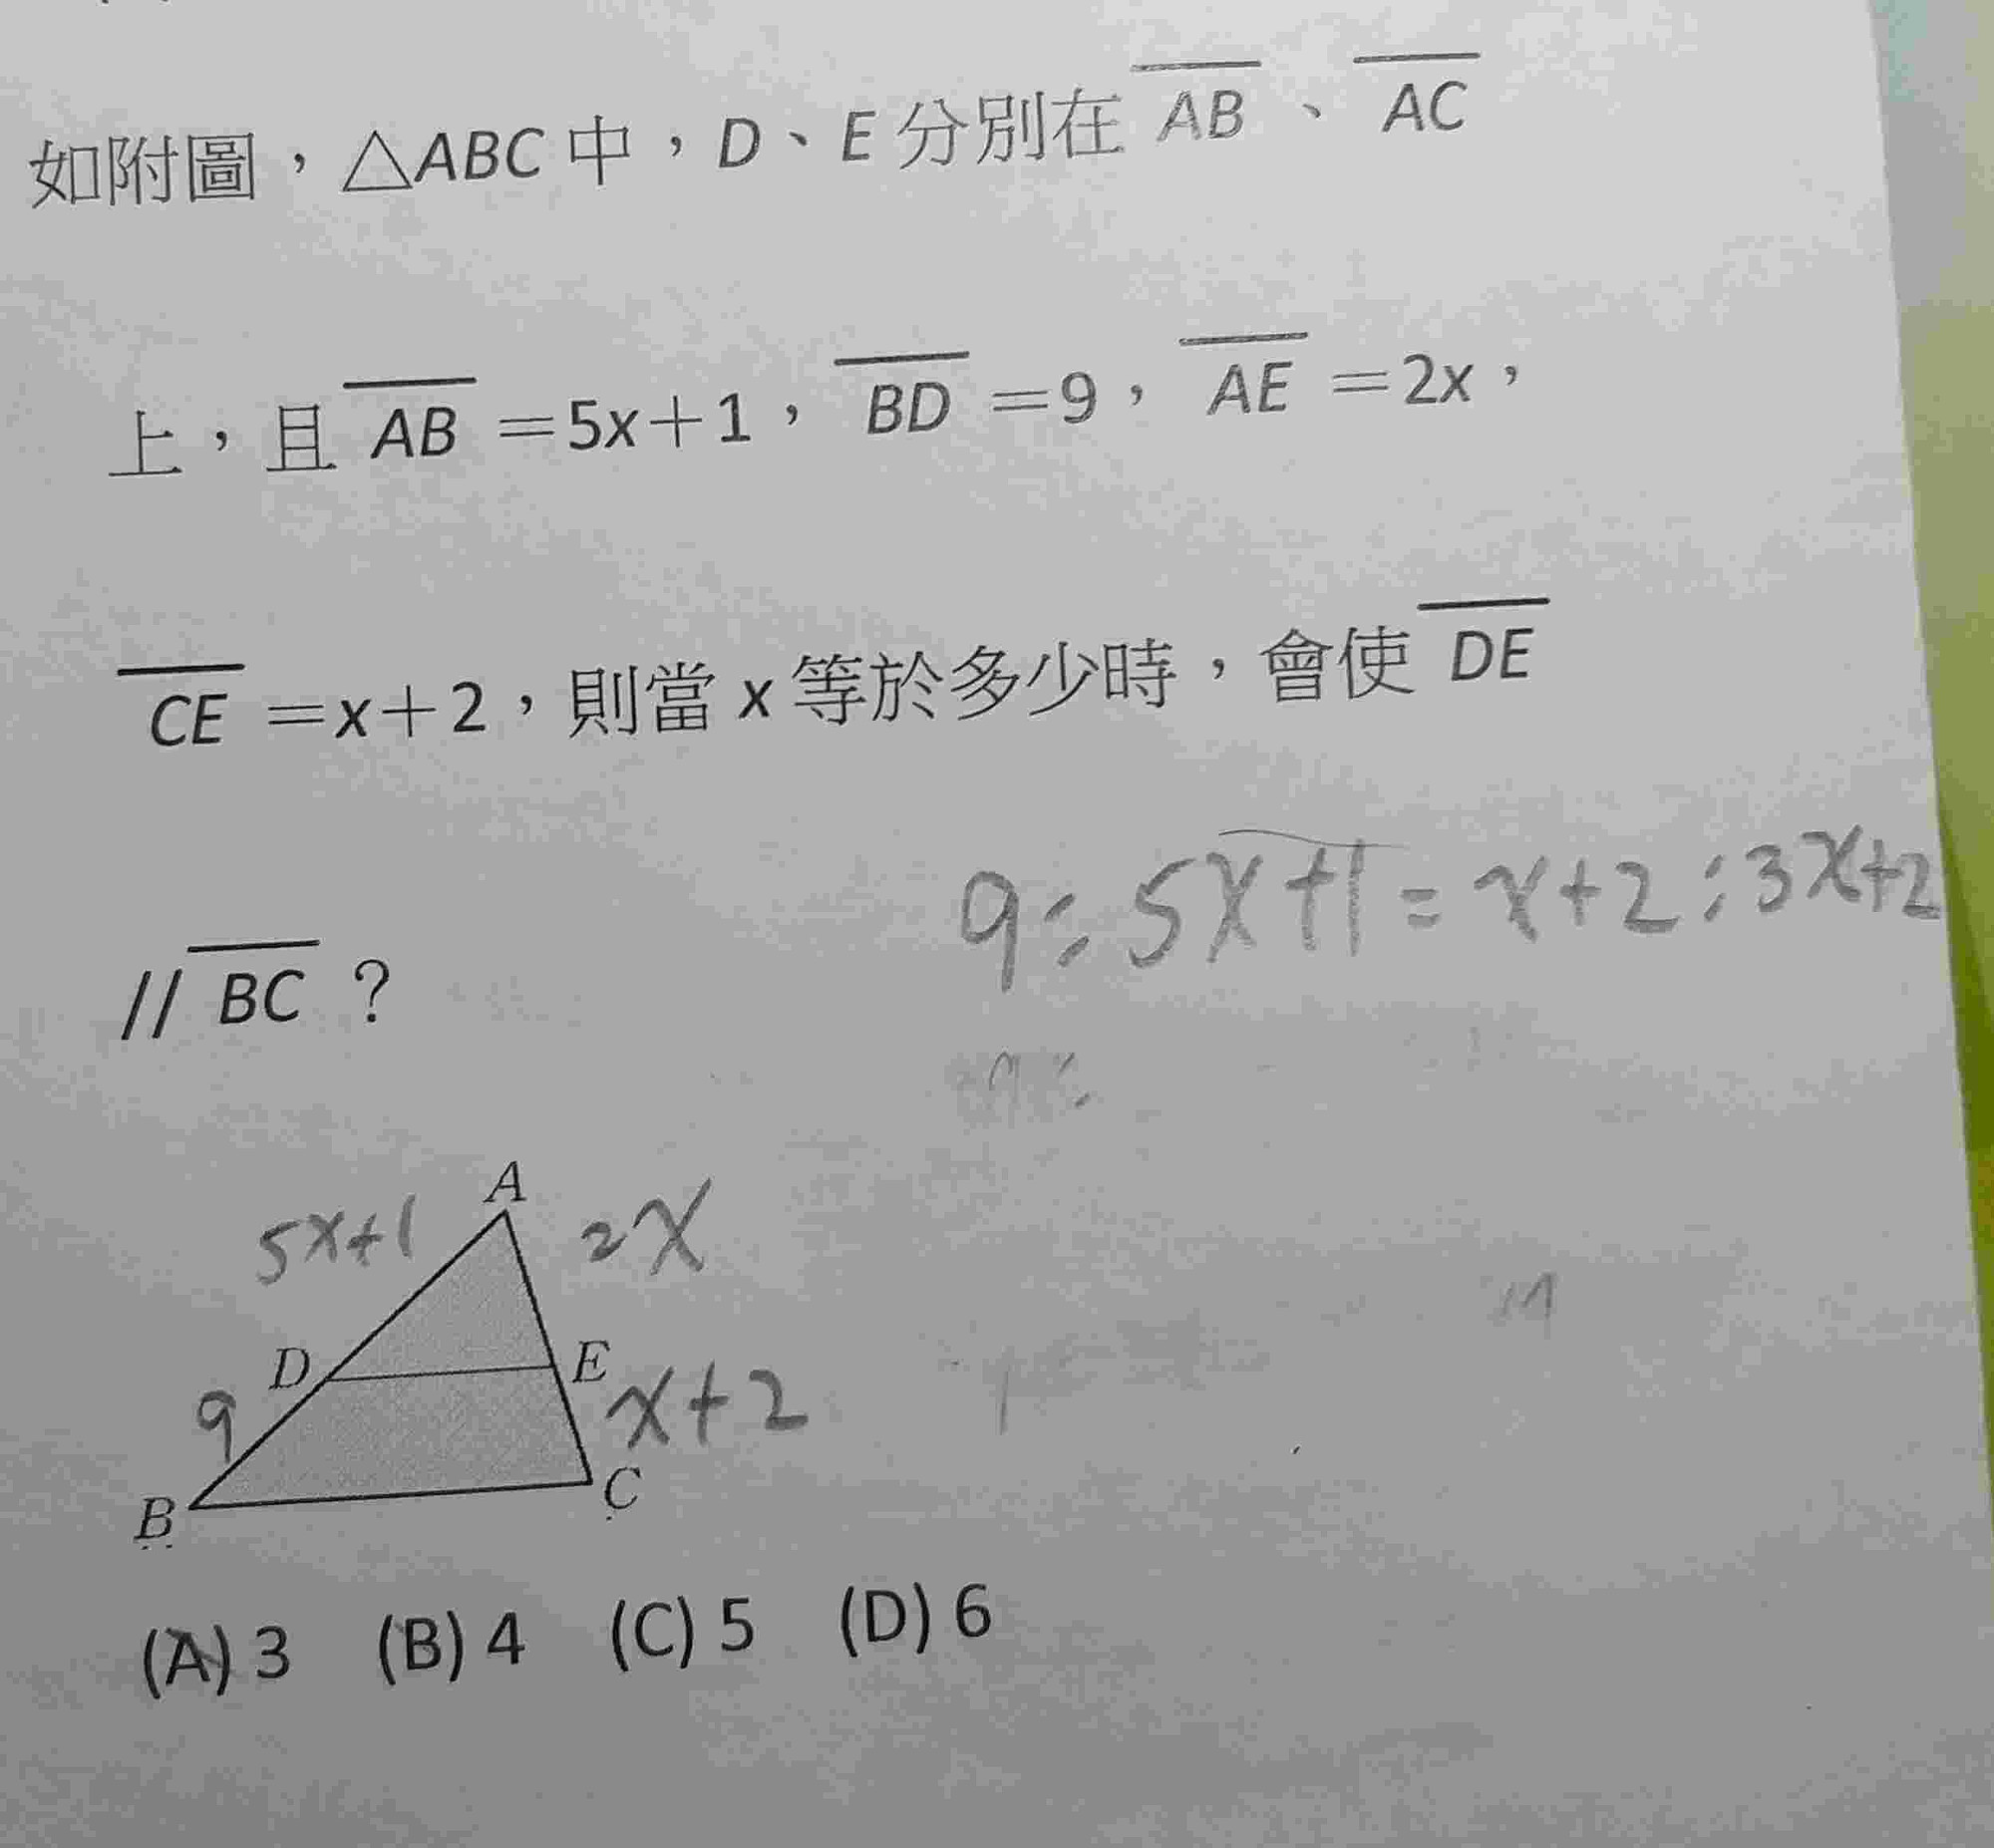 如附圖，△ABC 中，D、E 分別在 AB、AC
上，且 AB＝5x＋1，BD＝9，AE＝2x，
CE＝x＋2，則當 x 等於多少時，會使 DE
// BC？
9:5x+1=x+2:3x+2
A
5x+1
2x
D
E
9
x+2
B
C
(A) 3 (B) 4 (C) 5 (D) 6